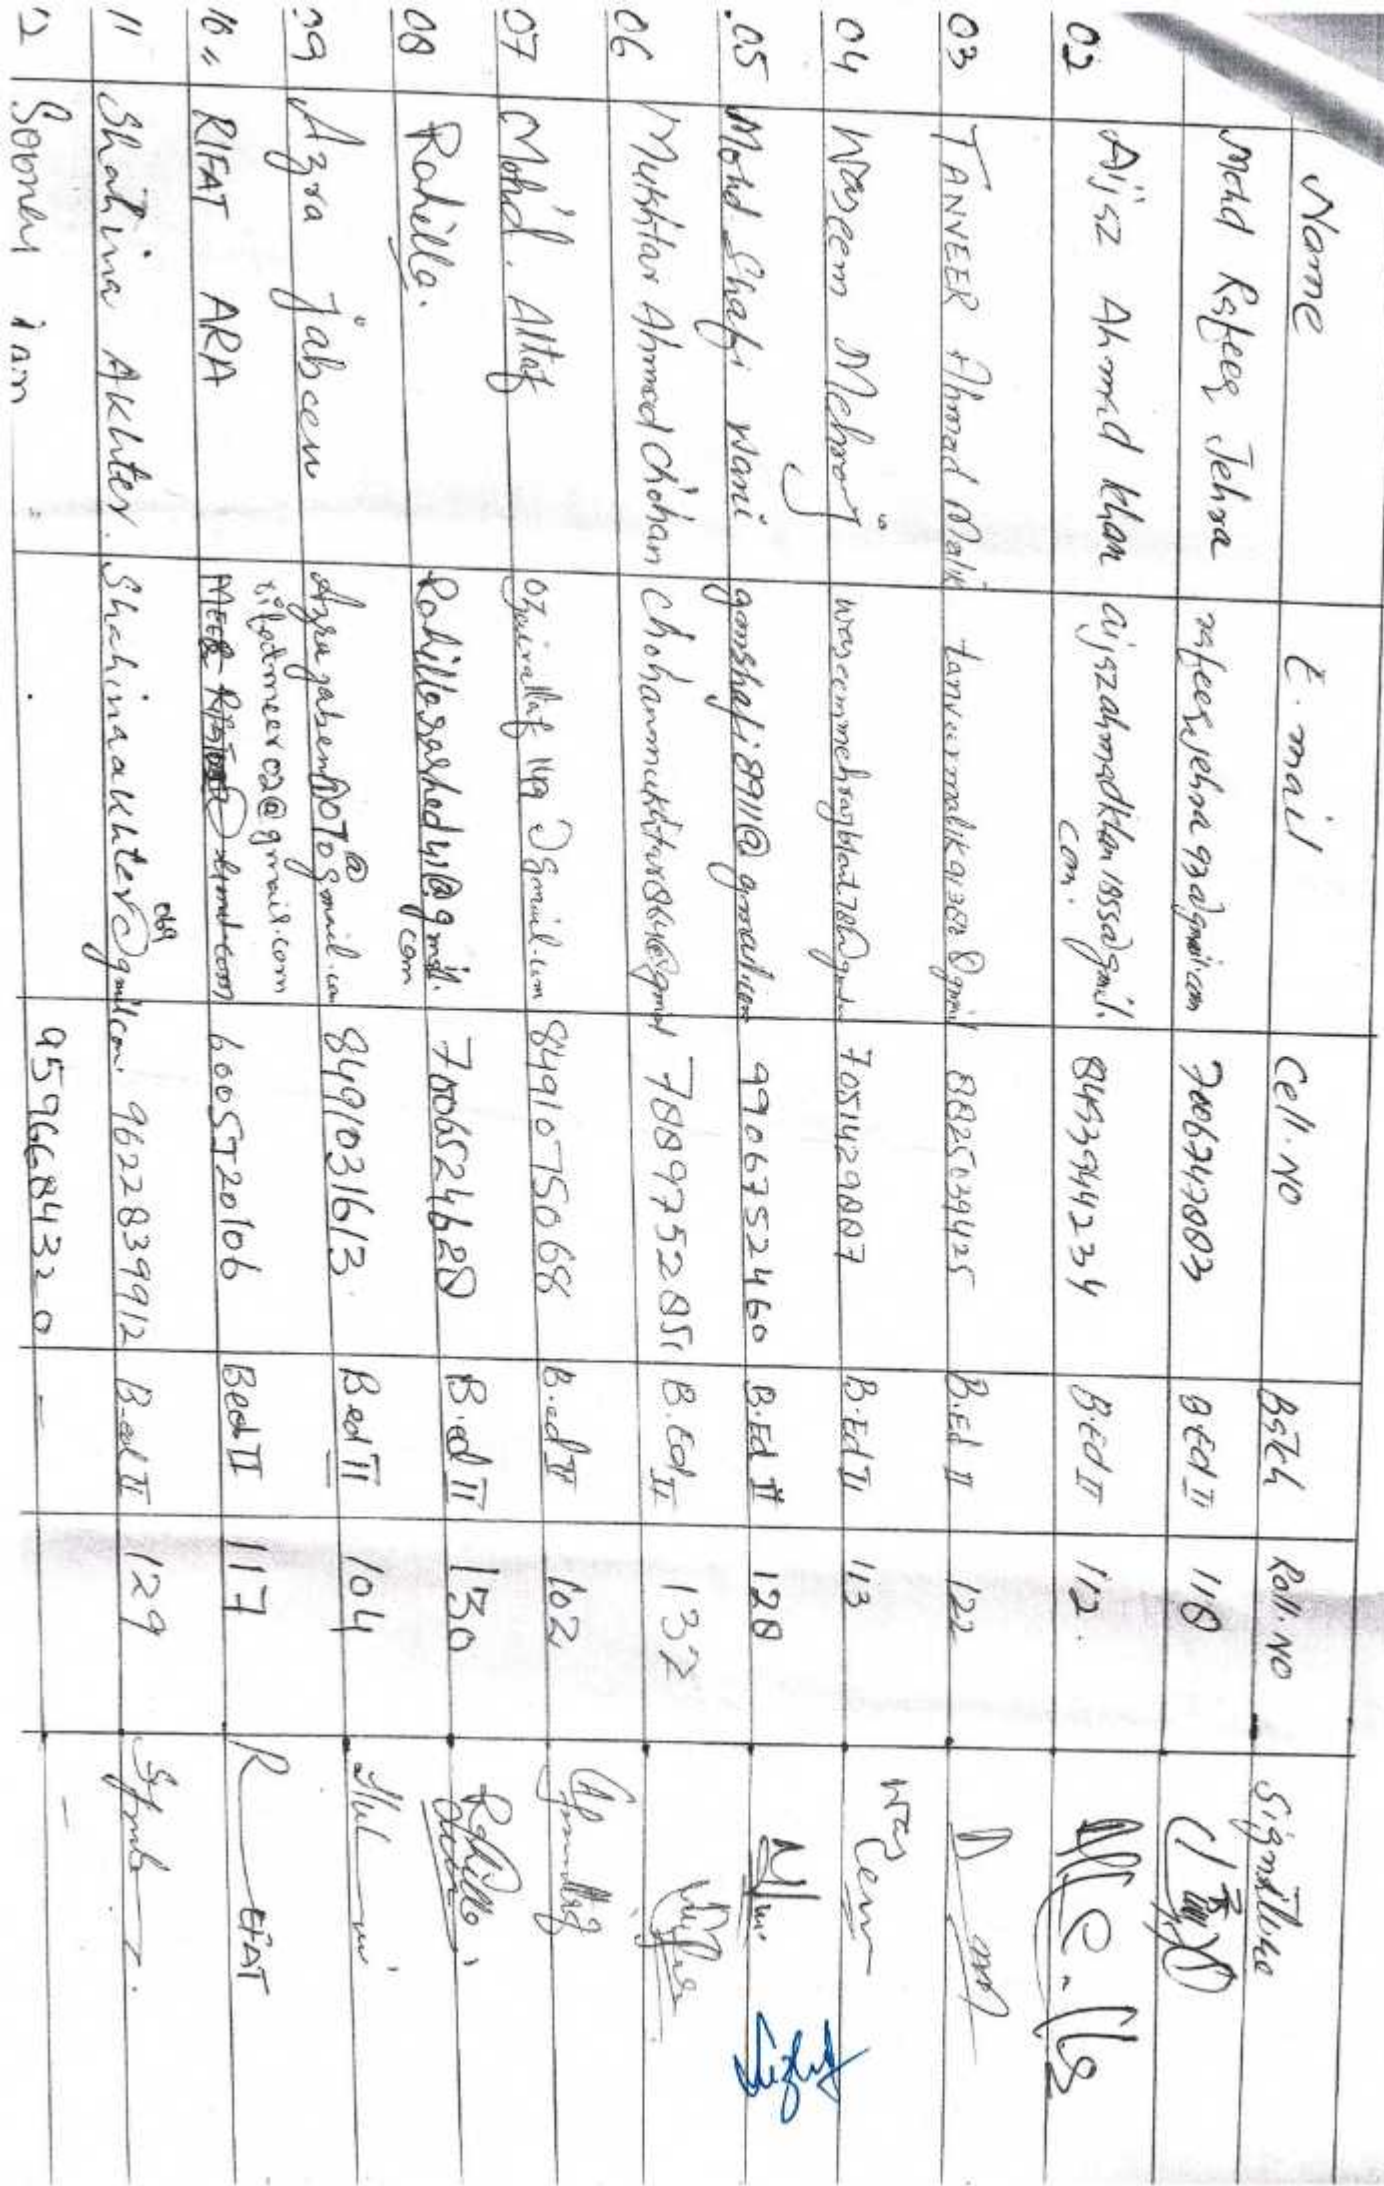 Name E.mail Cell.No Batch Roll.No Signature
Mohd Rafeeq Jehra rafeeqjehra92@gmail.com 7006747003 B Ed II 118
02 Aijaz Ahmad Khan aijazahmadkhan1855@gmail. 8493944234 B.Ed II 112.
com.
03 TANVEER Ahmad Malik tanveermalik91388@gmail 8825039425 B.Ed II 122
04 Waseem Mehraj 7051429887 B.Ed II 113 Waseem
.05 Mohd Shafi wani gamshafi8911@gmail.com 9906752460 B.Ed II 128
06 Mukhtar Ahmad Chohan Chohanmukhtar864@gmail B.Ed II 132
07 Mohd. Altaf ozairaltaf119@gmail.com 8491075068 B.ed II 102
08 Rahilla. Rahillarashed41@gmail. 7006524628 B.ed II 130 Rahilla
com
09 Azra Jabeen 8491031613. B ed II 104
rifatmeer02@gmail.com
10" RIFAT ARA 6005720106 Bed II 117 R EFAT
11 Shahina Akhter. Shahinaakhter069@gmail.com. 9622839912 B-ed II 129
12 9596684320 - -